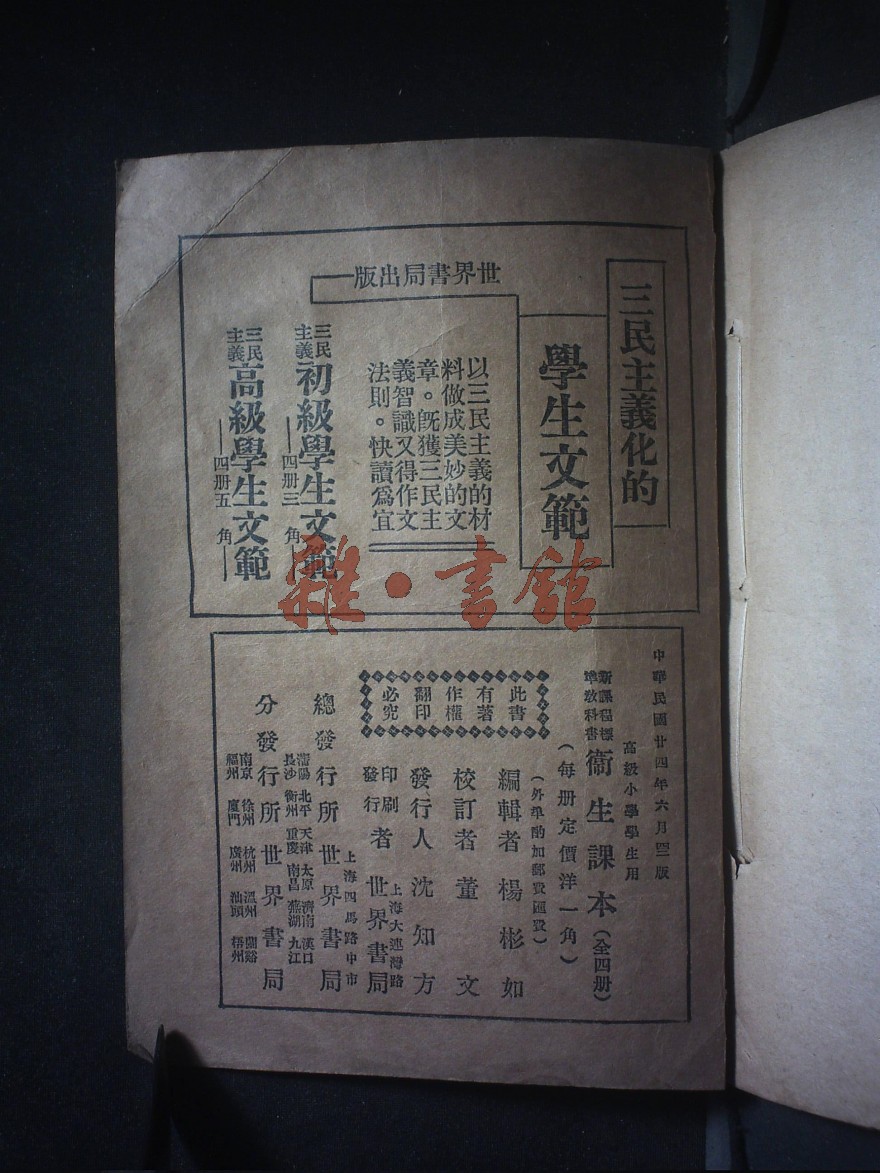 三民主義化的
學生文範
世界書局出版
以三民主義的材
料做成美妙的文
章。旣獲三民主
義智識又得作文
法則。快讀爲宜
三民主義初級學生文範
四册三角
三民主義高級學生文範
四册五角
雜·書館
中華民國廿四年六月四版
高級小學學生用
新課程標準教科書
衞生課本(全四册)
(每册定價洋一角)
(外埠酌加郵費匯費)
此書
有著
作權
翻印
必究
編輯者 楊彬如
校訂者 董文
發行人 沈知方
印刷發行者 世界書局
上海大連灣路
總發行所 世界書局
上海四馬路中市
分發行所 世界書局
瀋陽 北平 天津 太原 濟南 漢口
長沙 衡州 重慶 南昌 蕪湖 九江
南京 徐州 杭州 溫州 蘭谿
福州 廈門 廣州 汕頭 梧州